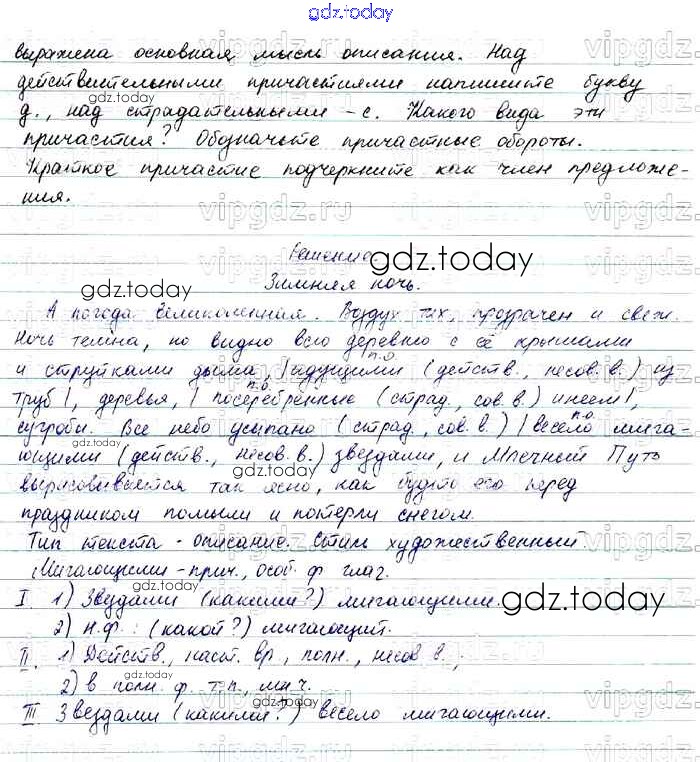 gdz.today
выражена основная мысль описания. Над
действительными причастиями напишите букву
д., над страдательными – с. Какого вида эти
причастия? Обозначьте причастные обороты.
Краткое причастие подчеркните как член предложе-
ния.
Решение
Зимняя ночь.
А погода великолепная. Воздух тих, прозрачен и свеж.
Ночь темна, но видно всю деревню с её крышами
и струйками дыма, |идущими (действ., несов. в.) из
п.о.
труб|, деревья, | посеребрённые (страд., сов. в.) инеем|,
п.о.
сугробы. Все небо усыпано (страд., сов. в.) | весело мига-
п.о.
ющими (действ., несов. в.) звездами, и Млечный Путь
вырисовывается так ясно, как будто его перед
праздником помыли и потерли снегом.
Тип текста - описание. Стиль художественный.
Мигающими - прич., особ. ф. глаг.
I. 1) Звездами (какими?) мигающими.
2) Н.ф.: (какой?) мигающий.
II. 1) Действ., наст. вр., полн., несов. в.;
2) в полн. ф. т.п., мн.ч.
III Звездами (какими?) весело мигающими.
vipgdz.ru
gdz.today